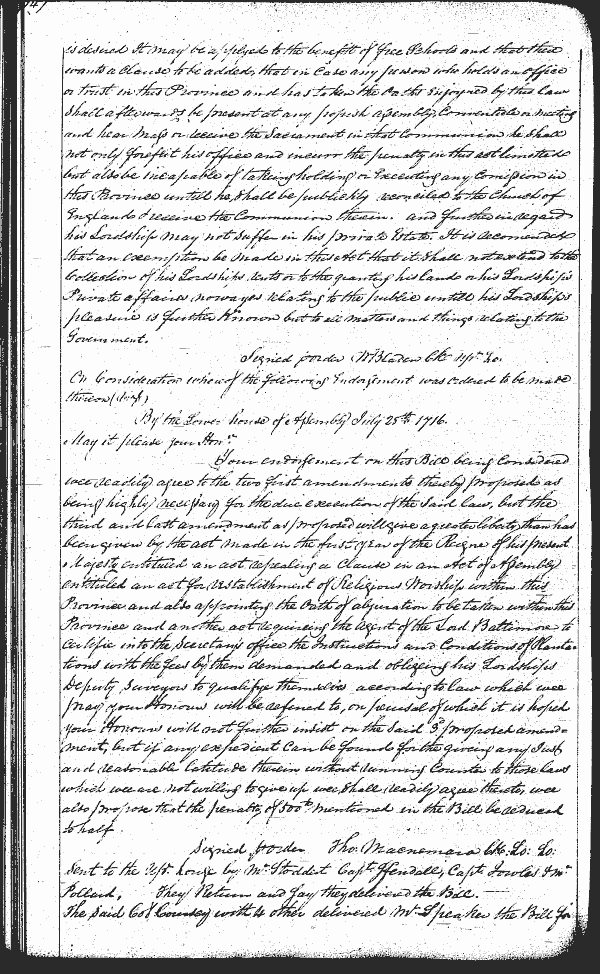 is desired it may be applyed to the benefit of free Schools and that there
wants a Clause to be added, that in Case any person who holds an office
or trust in this Province and has taken the Oaths Enjoyned by this Law
shall afterwards be present at any popish assembly Conventicle or meeting
and hear Mass or receive the Sacrament in that Communion he shall
not only forefeit his office and incurr the penalty in this act limited
but also be incapable of taking holding or Executing any Comission in
this Province untill he shall be publickly reconciled to the Church of
England & receive the Communion therein. and further in regard
his Lordship may not suffer in his private Estate. It is recomended
that an exemption be made in these Act that it shall not extend to the
Collection of his Lordships rents or to the granting his lands or his Lordships
Private affairs noways relating to the public untill his Lordships
pleasure is further Known but to all matters and things relating to the
Government.
Signed p order Wm Bladen Clk upr. ho.
On Consideration whereof the following Endorsement was ordered to be made
thereon (viz.)
By the Lower house of Assembly July 25th 1716.
May it please your Honrs.
Your endorsement on this Bill being Considered
wee readily agree to the two first amendments thereby proposed as
being highly necessary for the due execution of the said Law, but the
third and last amendment as proposed will give a greater lebate than has
been given by the act made in the first year of the Reigne of his present
Majesty entituled an act repealing a Clause in an Act of Assembly
entituled an act for establishment of Religious Worship within this
Province and also appointing the Oath of abjuration to be taken within this
Province and another act requireing the agent of the Lord Baltimore to
certifie into the Secretary's office the Instructions and Conditions of Planta-
tions with the fees by them demanded and obligeing his Lordships
Deputy Surveyors to qualifye themselves according to law which wee
pray your Honours will be refered to, on perusal of which it is hoped
your Honours will not further insist on the said 3d proposed amend-
ment, but if any expedient Can be found for the giving any Just
and reasonable latitude therein without running Counter to those laws
which wee are not willing to give up wee shall readily agree thereto, wee
also propose that the penalty of 500 mentioned in the Bill be reduced
to half.
Signed p order Tho. Macnemara Clk. Lo. ho.
Sent to the upr. house by Mr. Stoddert Capt. Kendall, Capt. Fowles & Mr.
Pollard. They Return and say they delivered the Bill.
The said Col Coursey with 4 other delivered Mr. Speaker the Bill for